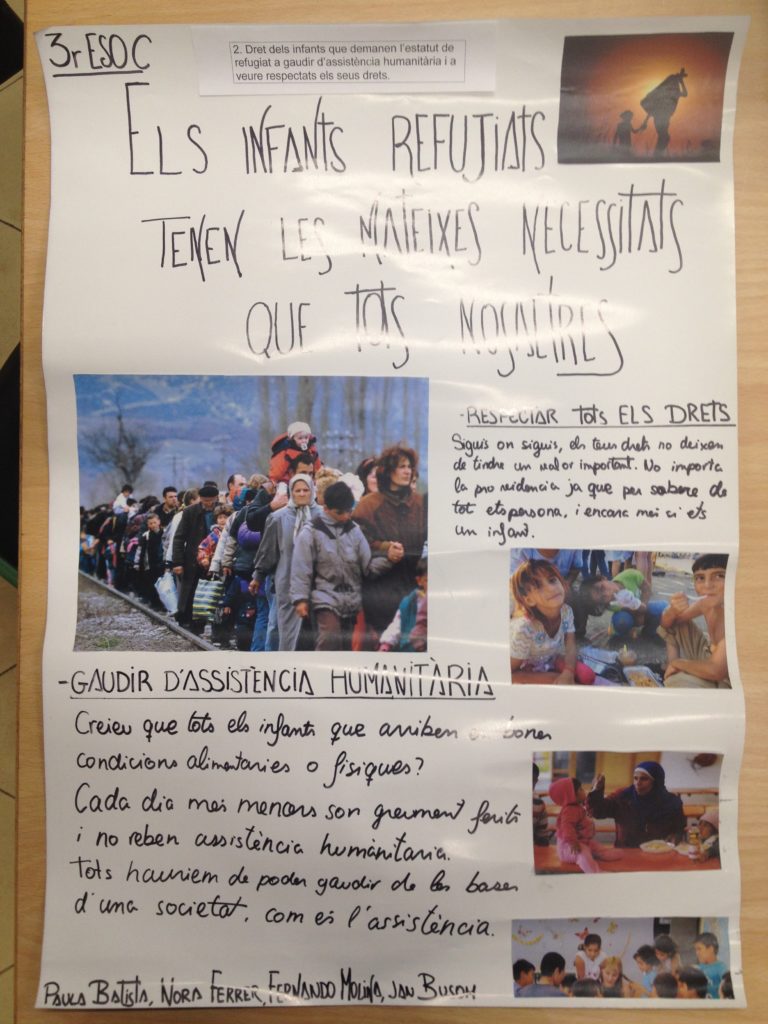 3r ESO C
2. Dret dels infants que demanen l'estatut de
refugiat a gaudir d'assistència humanitària i a
veure respectats els seus drets.
ELS INFANTS REFUJIATS
TENEN LES MATEIXES NECESSITATS
QUE TOTS NOSALTRES
-RESPECTAR TOTS ELS DRETS
Siguis on siguis, els teus drets no deixen
de tindre un valor important. No importa
la providencia ja que per sobere de
tot ets persona, i encara mei si ets
un infant.
-GAUDIR D'ASSISTÈNCIA HUMANITÀRIA
Creieu que tots els infants que arriben en bones
condicions alimentaries o fisiques?
Cada dia mes menors son greument ferits
i no reben assistència humanitaria.
Tots hauriem de poder gaudir de les bases
d'una societat, com es l'assistència.
PAULA BATISTA, NORA FERRER, FERNANDO MOLINA, JAN BUSOM